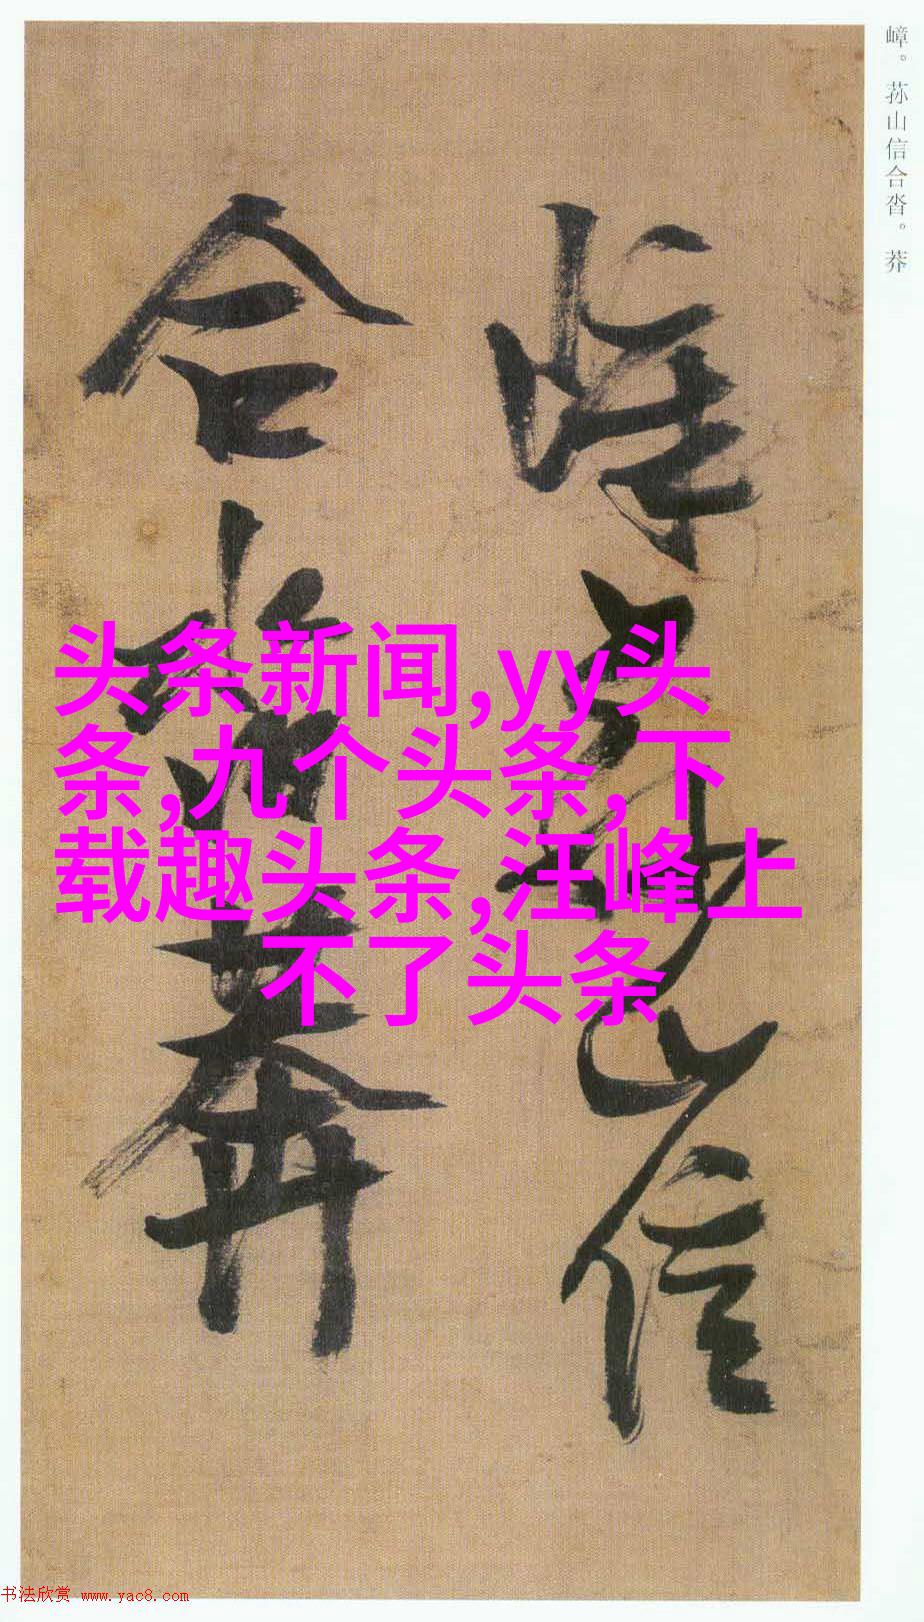 嶂。荪山信合沓。莽
嶂荪山信
合沓莽
头条新闻,yy头
条,九个头条,下
载趣头条,汪峰上
不了头条
书法欣赏 www.yac8.com